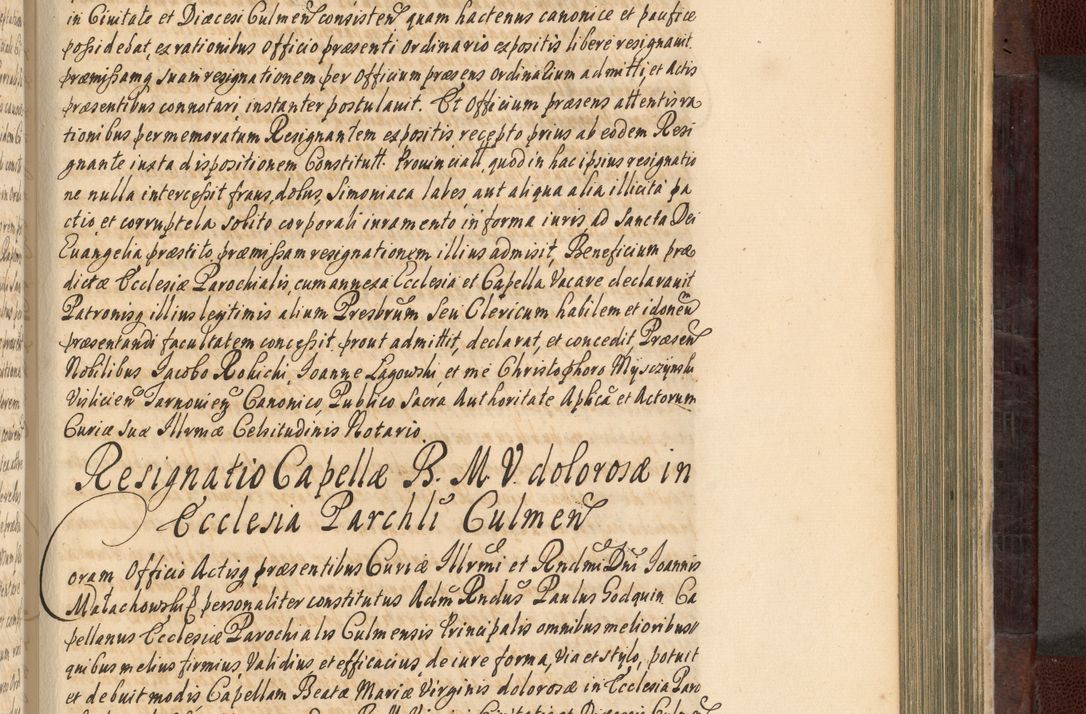 in Civitate et Diæcesi Culmen̄ consisten̄ quam hactenus canonice et pacifice
possidebat, ex rationibus officio præsenti ordinario expositis libere resignavit.
præmissamq suam resignationem per officium præsens ordinarium admitti, et Actis
præsentibus connotari, instanter postulavit. Et Officium præsens attentis ra
tionibus per memoratum Resignantem expositis, recepto prius ab eodem Resi
gnante iuxta dispositionem Constitutt. Provinciall. quod in hac ipsius resignatio
ne nulla intercessit fraus, dolus, Simoniaca labes, aut aliqua alia illicita pa
ctio et corruptela solito corporali iuramento in forma iuris, ad Sancta Dei
Euangelia præstito, præmissam resignationem illius admisit, Beneficium præ
dictæ Ecclesiæ Parochialis, cum annexa Ecclesia et Capella Vacare declaravit
Patronisq illius legitimis alium Presbrum̄ Seu Clericum habilem et idoneum̄
præsentandi facultatem concessit. prout admittit, declarat, et concedit, Præsen̄
Nobilibus Jacobo Rokicki, Joanne Łagowski, et me Christophoro Mysczynski
Vislicien̄ Tarnovien̄ Canonico, Publico Sacra Authoritate Aplicā et Actorum
Curiæ suæ Illrmæ Celsitudinis Notario.
Resignatio Capellæ B. M. V. dolorosæ in
Ecclesia Parchli Culmen̄
Coram Officio Actisq præsentibus Curiæ Illrmi et Rndmi Dni Joannis
Małachowski personaliter constitutus Adm̄ Rndus Paulus Godquin Ca
pellanus Ecclesiæ Parochialis Culmensis Principalis omnibus melioribus
quibus melius firmius, Validius et efficacius, de iure forma, Via et stylo, potuit
et debuit modis Capellam Beatæ Mariæ Virginis dolorosæ in Ecclesia Paro